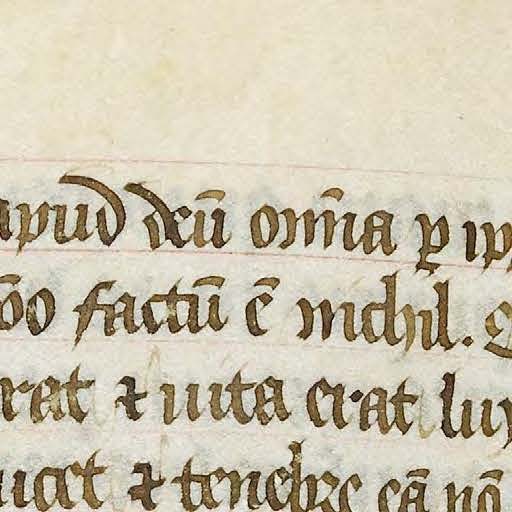 apud deū om̄ia ꝑ ip
ōo factū ē nichil.
rat ⁊ uita erat lux
ucet ⁊ tenebre eā nō